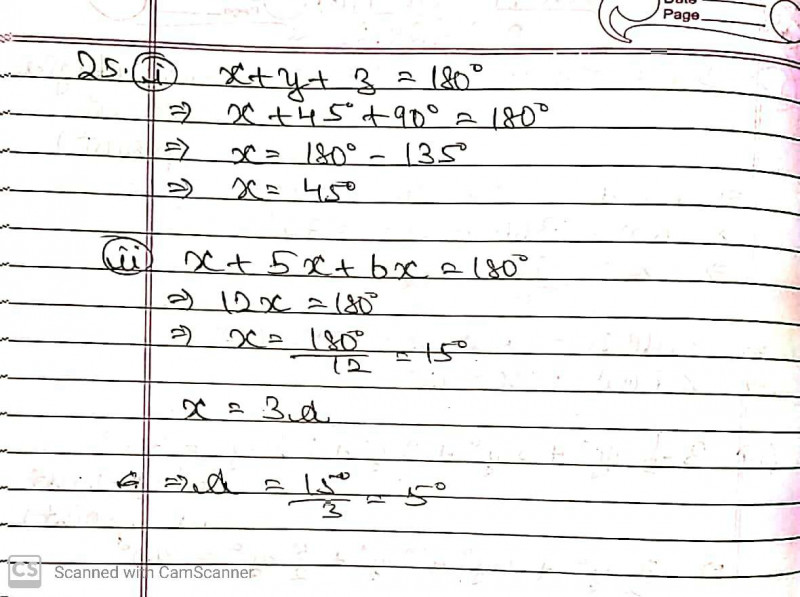 Date
Page
25. (ii) x + y + z = 180°
⇒ x + 45° + 90° = 180°
⇒ x = 180° - 135°
⇒ x = 45°
(iii) x + 5x + 6x = 180°
⇒ 12x = 180°
⇒ x = 180°/12 = 15°
x = 3d
⇒ d = 15°/3 = 5°
CS Scanned with CamScanner